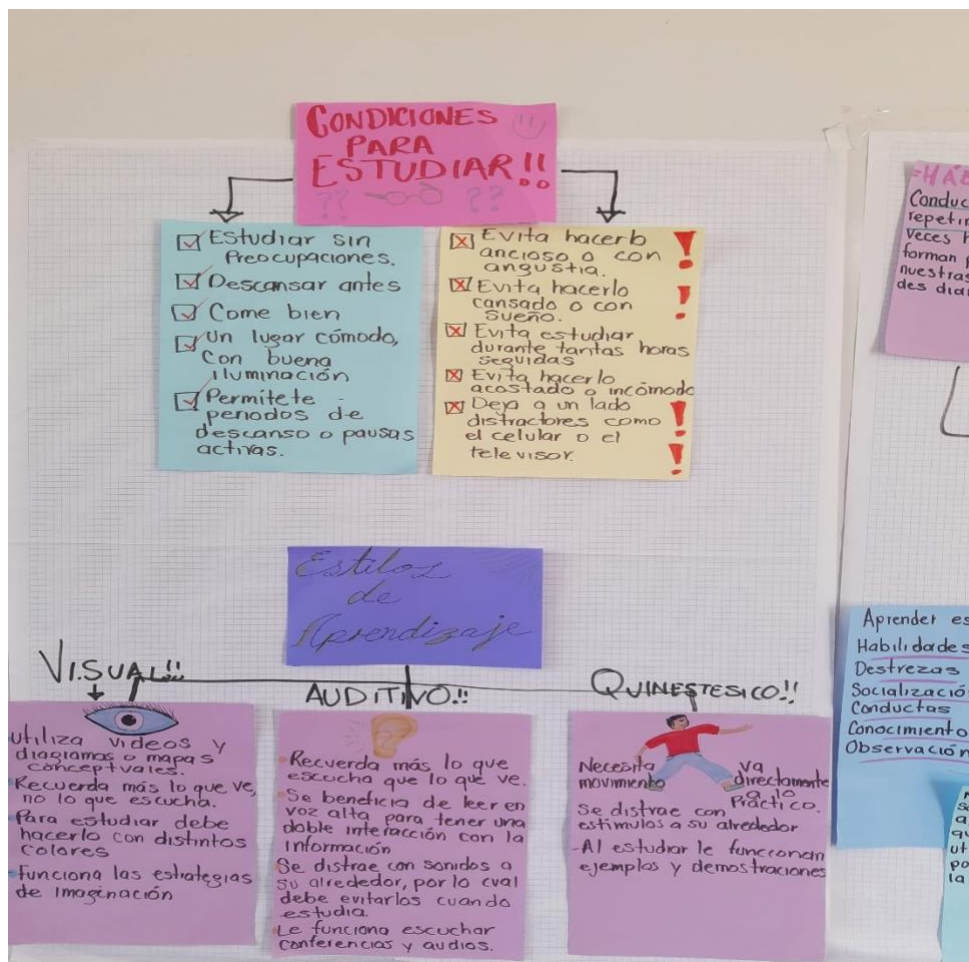 CONDICIONES
PARA
ESTUDIAR!!
?? ??
Estudiar sin
Preocupaciones.
Descansar antes
Come bien
Un lugar cómodo,
con buena
iluminación
Permítete
periodos de
descanso o pausas
activas.
Evita hacerlo
ancioso o con
angustia.
Evita hacerlo
cansado o con
sueño.
Evita estudiar
durante tantas horas
seguidas
Evita hacerlo
acostado o incómodo
Deja a un lado
distractores como
el celular o el
televisor.
Estilos
de
Aprendizaje
VISUAL!!
utiliza videos y
diagramas o mapas
conceptuales.
Recuerda más lo que ve,
no lo que escucha.
Para estudiar debe
hacerlo con distintos
colores
funciona las estrategias
de imaginación
AUDITIVO!!
Recuerda más lo que
escucha que lo que ve.
Se beneficia de leer en
voz alta para tener una
doble interacción con la
información
Se distrae con sonidos a
su alrededor, por lo cual
debe evitarlos cuando
estudia.
Le funciona escuchar
conferencias y audios.
QUINESTESICO!!
Necesita
movimiento
va
directamente
a lo
Práctico.
Se distrae con
estímulos a su alrededor
-Al estudiar le funcionan
ejemplos y demostraciones
repetir
veces
forman
nuestras
Aprender es
Habilidades
Destrezas
Socialización
Conductas
Conocimiento
Observación
la